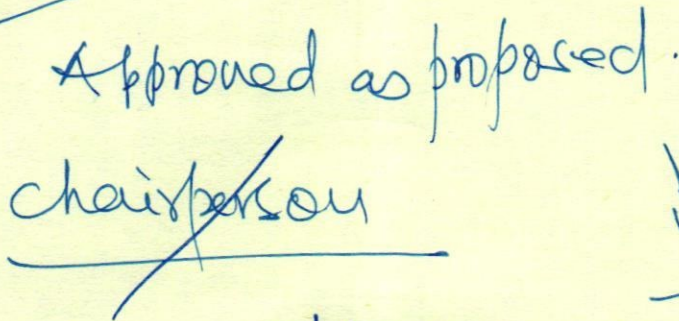 Approved as proposed.
chairperson